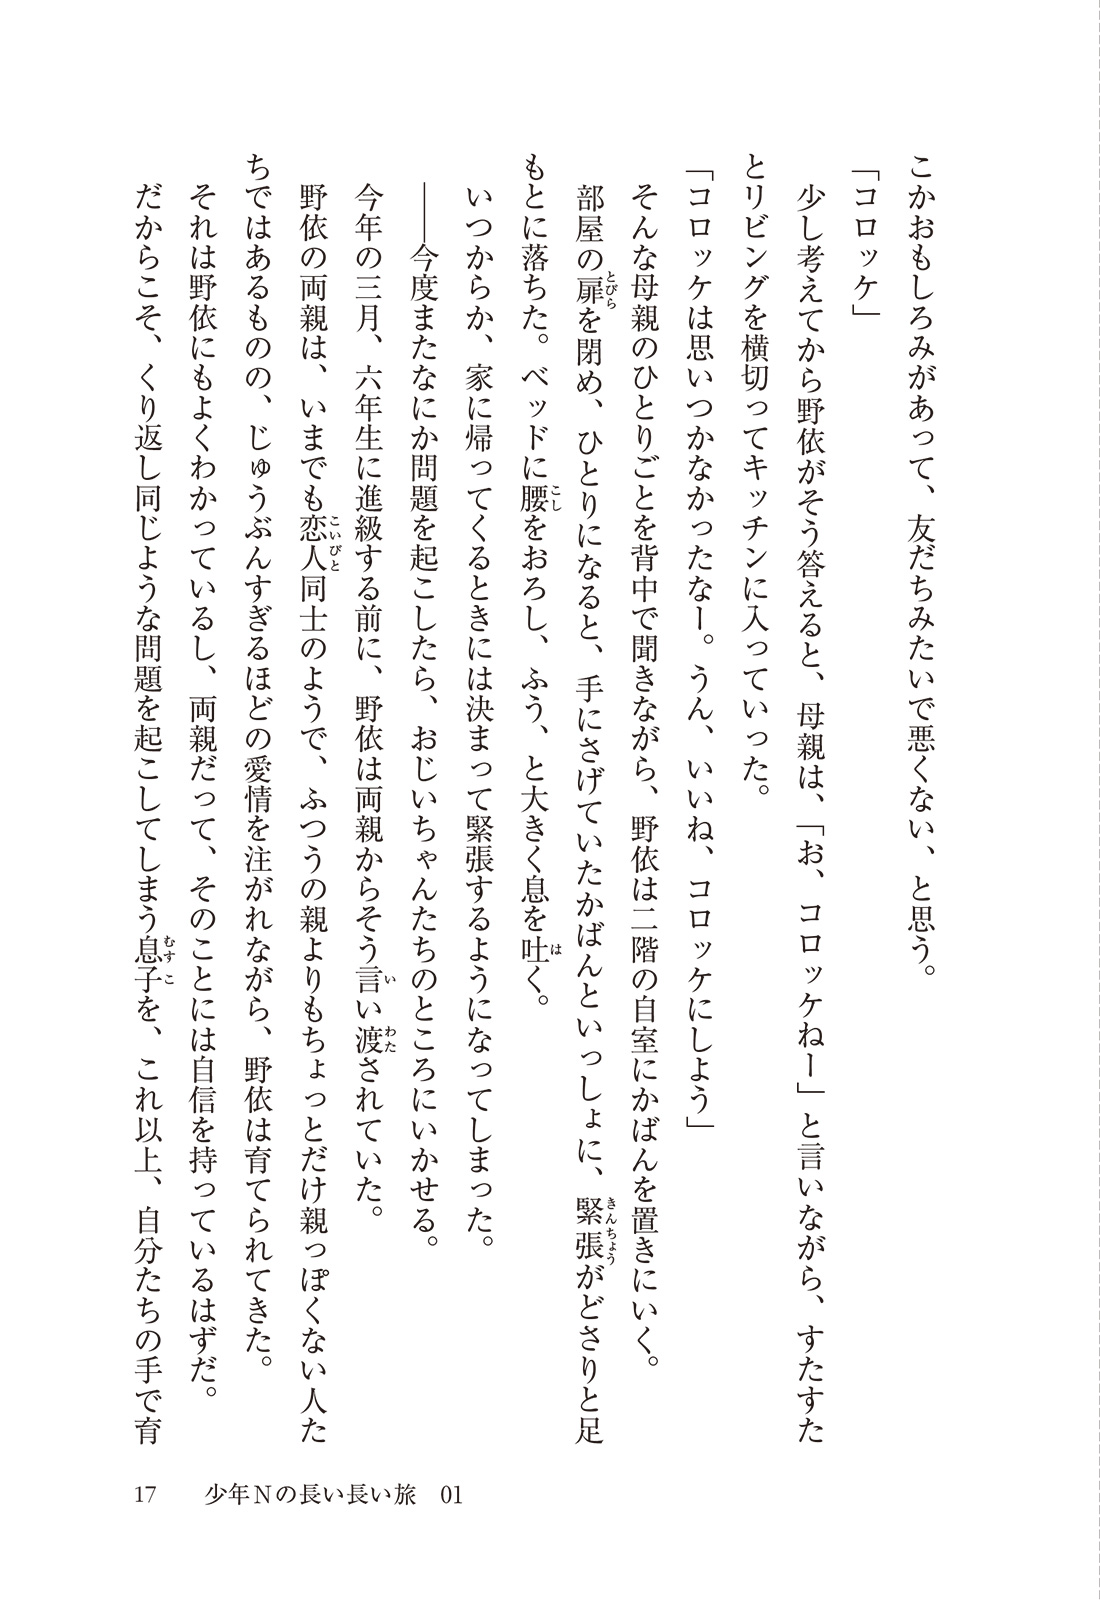 こかおもしろみがあって、友だちみたいで悪くない、と思う。
「コロッケ」
少し考えてから野依がそう答えると、母親は、「お、コロッケねー」と言いながら、すたすた
とリビングを横切ってキッチンに入っていった。
「コロッケは思いつかなかったなー。うん、いいね、コロッケにしよう」
そんな母親のひとりごとを背中で聞きながら、野依は二階の自室にかばんを置きにいく。
部屋の扉を閉め、ひとりになると、手にさげていたかばんといっしょに、緊張がどさりと足
もとに落ちた。ベッドに腰をおろし、ふう、と大きく息を吐く。
いつからか、家に帰ってくるときには決まって緊張するようになってしまった。
――今度またなにか問題を起こしたら、おじいちゃんたちのところにいかせる。
今年の三月、六年生に進級する前に、野依は両親からそう言い渡されていた。
野依の両親は、いまでも恋人同士のようで、ふつうの親よりもちょっとだけ親っぽくない人た
ちではあるものの、じゅうぶんすぎるほどの愛情を注がれながら、野依は育てられてきた。
それは野依にもよくわかっているし、両親だって、そのことには自信を持っているはずだ。
だからこそ、くり返し同じような問題を起こしてしまう息子を、これ以上、自分たちの手で育
17　少年Nの長い長い旅　01